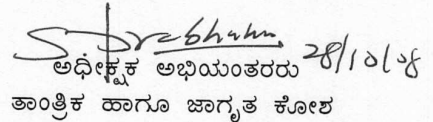 28/10/08
ಅಧೀಕ್ಷಕ ಅಭಿಯಂತರರು
ತಾಂತ್ರಿಕ ಹಾಗೂ ಜಾಗೃತ ಕೋಶ